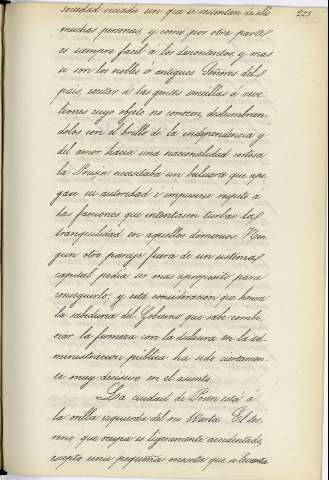 223
sociedad viciada son que se resientan de ello
muchas personas, y como por otra parte
es siempre facil à los descontentos, y mas
si son los nobles ó antiguos Señores del
pais, excitar á las gentes sencillas á rebe-
liones cuyo objeto no conocen, deslumbran-
dolos con el brillo de la independencia y
del amor hacia una nacionalidad
la Prusia necesitaba un baluarte que apo-
yase su autoridad é impusiese respeto á
las facciones que intentasen turbar la
tranquilidad en aquellos dominios. Nin-
gun otro paraje fuera de un sistema
capital podia ser mas apropósito para
conseguirlo; y esta consideracion que honra
la sabiduria del Gobierno que sabe combi-
nar la firmeza con la dulzura en la ad-
ministracion pública ha sido ciertamen-
te muy decisiva en el asunto.
La ciudad de Posen está á
la orilla izquierda del rio Warta. El ter-
reno que ocupa es ligeramente accidentado,
escepto una pequeña meseta que se levanta